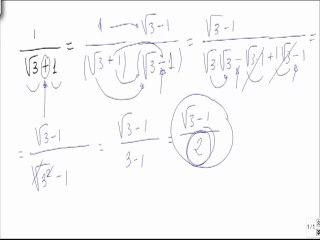 1/(√3+1) = 1 · √3-1/((√3+1)(√3-1)) = √3-1/(√3·√3-√3·1+1√3-1) =
= √3-1/(√3²-1) = √3-1/(3-1) = √3-1/2
1/1